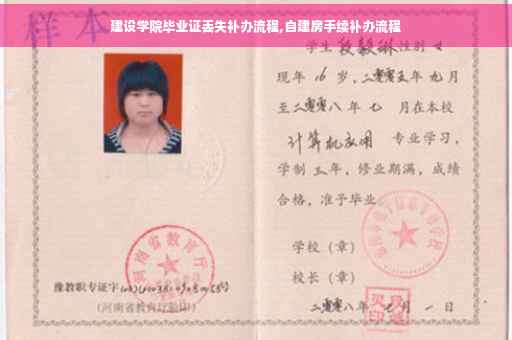 建设学院毕业证丢失补办流程,自建房手续补办流程
样本
学生 段毅琳 性别 女
现年 16 岁，二零零五年 九月
至二零零八年 七 月在本校
计算机应用 专业学习，
学制 三 年，修业期满，成绩
合格，准予毕业
学校（章）
校长（章）
河南省教育厅
豫教职专证字
（河南省教育厅验印）
二零零八年 七月 一 日